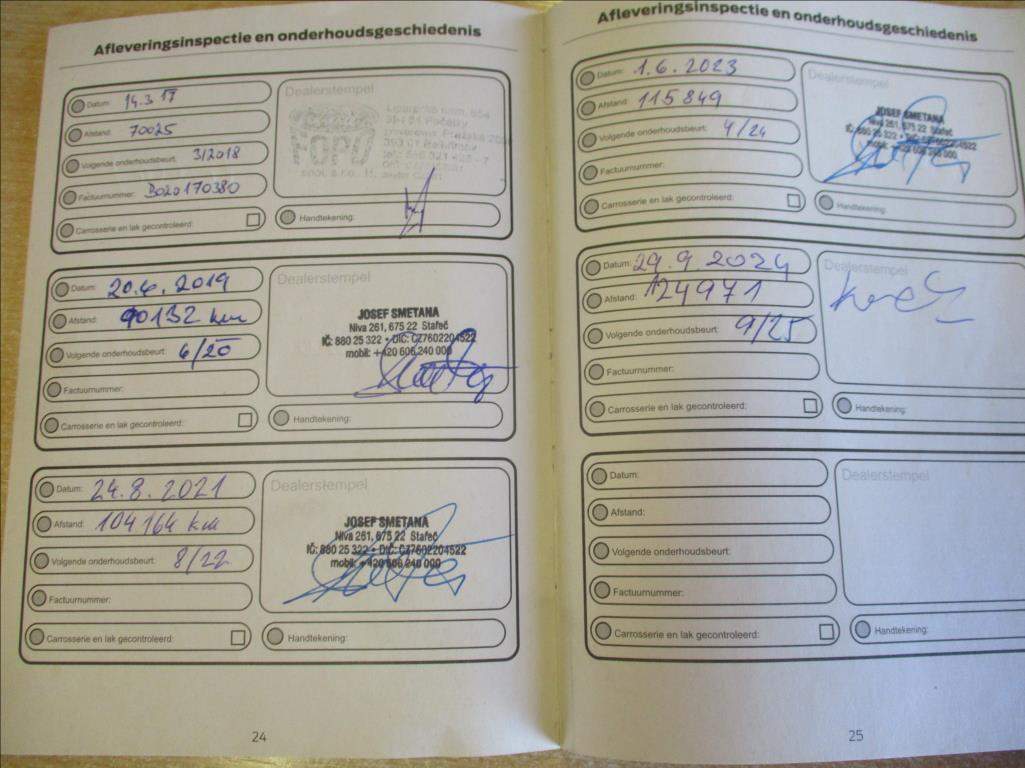 Afleveringsinspectie en onderhoudsgeschiedenis
Datum: 14.3 17
Afstand: 70025
Volgende onderhoudsbeurt: 3/2018
Factuurnummer: B020170380
Carrosserie en lak gecontroleerd:
Dealerstempel
FOPO
Handtekening:
Datum: 20.6.2019
Afstand: 90132 km
Volgende onderhoudsbeurt: 6/20
Factuurnummer:
Carrosserie en lak gecontroleerd:
Dealerstempel
JOSEF SMETANA
Niva 261, 675 22 Stařeč
IČ: 880 25 322 • DIČ: CZ7602204522
mobil: +420 606 240 000
Handtekening:
Datum: 24.8.2021
Afstand: 104164 km
Volgende onderhoudsbeurt: 8/22
Factuurnummer:
Carrosserie en lak gecontroleerd:
Dealerstempel
JOSEF SMETANA
Niva 261, 675 22 Stařeč
IČ: 880 25 322 • DIČ: CZ7602204522
mobil: +420 606 240 000
Handtekening:
24
Afleveringsinspectie en onderhoudsgeschiedenis
Datum: 1.6.2023
Afstand: 115849
Volgende onderhoudsbeurt: 4/24
Factuurnummer:
Carrosserie en lak gecontroleerd:
Dealerstempel
JOSEF SMETANA
Niva 261, 675 22 Stařeč
IČ: 880 25 322 • DIČ: CZ7602204522
mobil: +420 606 240 000
Handtekening:
Datum: 29.9.2024
Afstand: 124971
Volgende onderhoudsbeurt: 9/25
Factuurnummer:
Carrosserie en lak gecontroleerd:
Dealerstempel
Handtekening:
Datum:
Afstand:
Volgende onderhoudsbeurt:
Factuurnummer:
Carrosserie en lak gecontroleerd:
Dealerstempel
Handtekening:
25